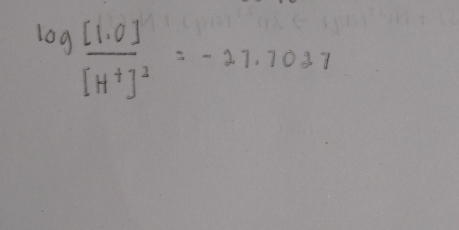 log [1.0] / [H⁺]² = -27.7027